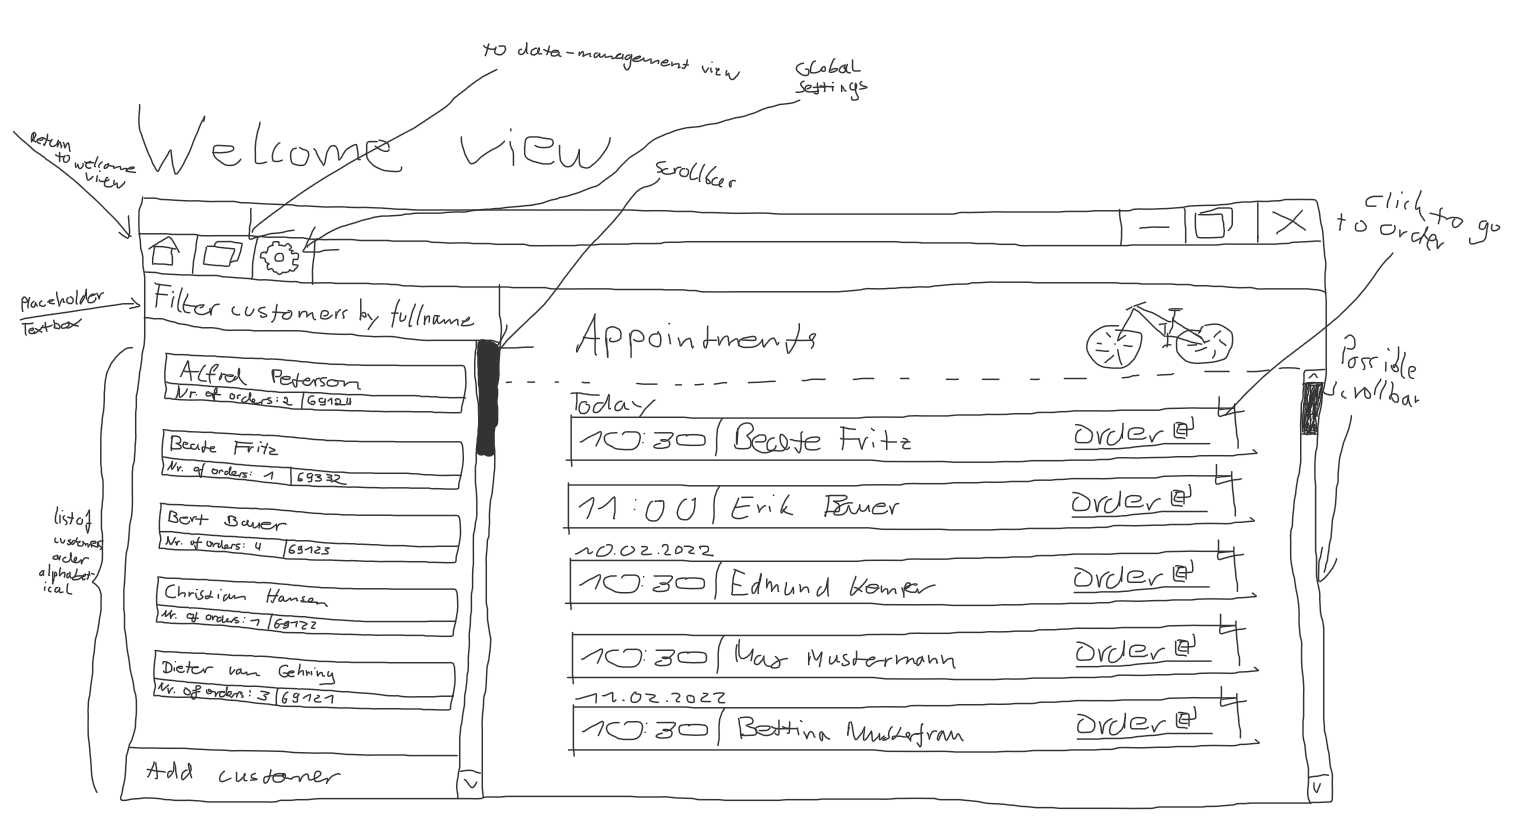 to data-management view
Global
settings
Welcome view
Return
to welcome
view
scrollbar
click to go
to order
Placeholder
Textbox
Filter customers by fullname
Appointments
Possible
scrollbar
Alfred Peterson
Nr. of orders: 2 69124
Beate Fritz
Nr. of orders: 1 69332
Bert Bauer
Nr. of orders: 4 69123
Christian Hansen
Nr. of orders: 1 69122
Dieter van Gehring
Nr. of orders: 3 69121
Add customer
list of
customer
order
alphabet-
ical
Today
10:30 Beate Fritz Order
11:00 Erik Bauer Order
10.02.2022
10:30 Edmund Kemper Order
10:30 Max Mustermann Order
11.02.2022
10:30 Bettina Musterfrau Order